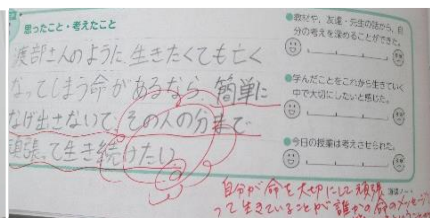 思ったこと・考えたこと
渡部さんのように、生きたくても亡く
なってしまう命があるなら、簡単に
なげ出さないで、その人の分まで
頑張って生き続けたい
●教材や、友達・先生の話から、自
分の考えを深めることができた。
●学んだことをこれから生きていく
中で大切にしたいと感じた。
●今日の授業は考えさせられた。
自分が命を大切にして頑張
って生きていることが誰かの命のメッセージ